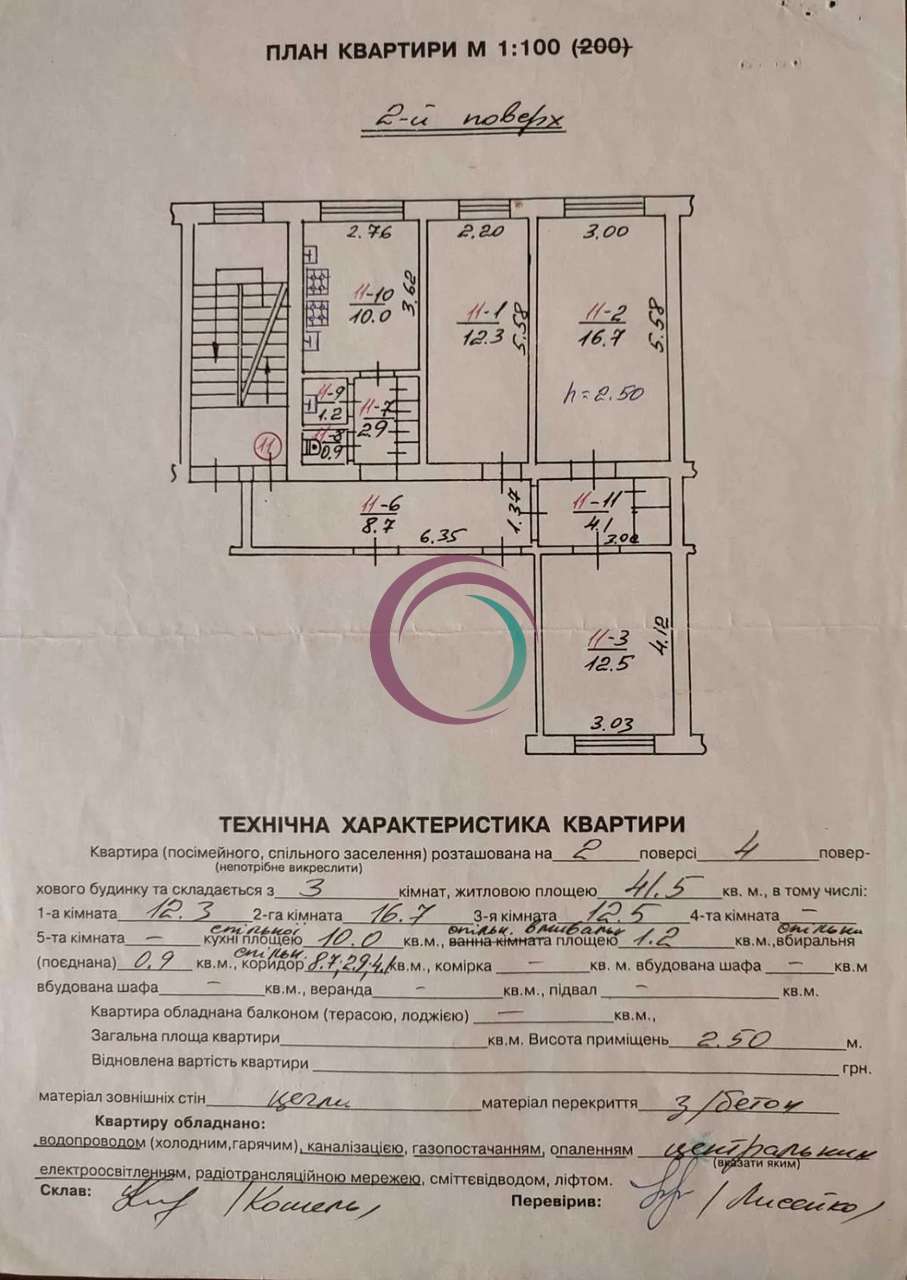 ПЛАН КВАРТИРИ М 1:100 (200)
2-й поверх
2.76 2.20 3.00
11-10
10.0
3.62
11-1
12.3
5.58
11-2
16.7
5.58
h=2.50
11-9
1.2
11-7
2.9
11-8
0.9
11
11-6
8.7
6.35
1.37
11-11
4.1
11-3
12.5
4.12
3.03
ТЕХНІЧНА ХАРАКТЕРИСТИКА КВАРТИРИ
Квартира (посімейного, спільного заселення) розташована на 2 поверсі 4 повер-
(непотрібне викреслити)
хового будинку та складається з 3 кімнат, житловою площею 41.5 кв. м., в тому числі:
1-а кімната 12.3 2-га кімната 16.7 3-я кімната 12.5 4-та кімната –
спільної спільн. вмивальн спільн
5-та кімната – кухні площею 10.0 кв.м., ванна кімната площею 1.2 кв.м.,вбиральня
спільн.
(поєднана) 0,9 кв.м., коридор 8.7; 2.9; 4.1 кв.м., комірка – кв. м. вбудована шафа – кв.м
вбудована шафа – кв.м., веранда – кв.м., підвал – кв.м.
Квартира обладнана балконом (терасою, лоджією) – кв.м.,
Загальна площа квартири кв.м. Висота приміщень 2.50 м.
Відновлена вартість квартири грн.
матеріал зовнішніх стін цегли матеріал перекриття з/бетон
Квартиру обладнано:
водопроводом (холодним,гарячим), каналізацією, газопостачанням, опаленням центральним
(вказати яким)
електроосвітленням, радіотрансляційною мережею, сміттєвідводом, ліфтом.
Склав: /Кошель/ Перевірив: /Лисейко/